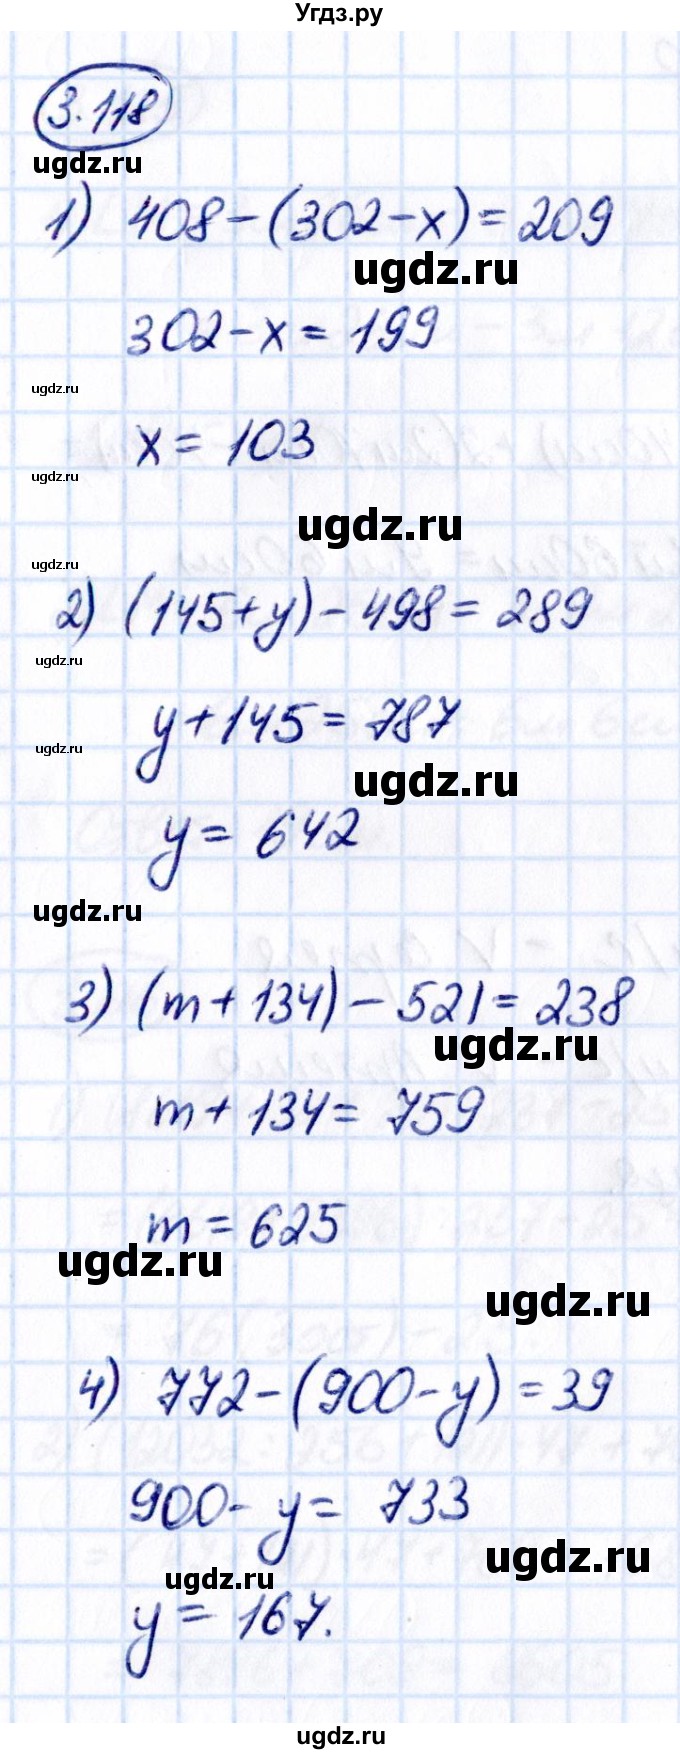 Угдз.ру
3.118
ugdz.ru
1) 408-(302-x)=209
ugdz.ru
302-x=199
ugdz.ru
x=103
ugdz.ru
ugdz.ru
ugdz.ru
2) (145+y)-498=289
ugdz.ru
y+145=787
ugdz.ru
ugdz.ru
y=642
ugdz.ru
3) (m+134)-521=238
ugdz.ru
m+134=759
m=625
ugdz.ru
ugdz.ru
4) 772-(900-y)=39
900-y=733
ugdz.ru
ugdz.ru
y=167.
ugdz.ru